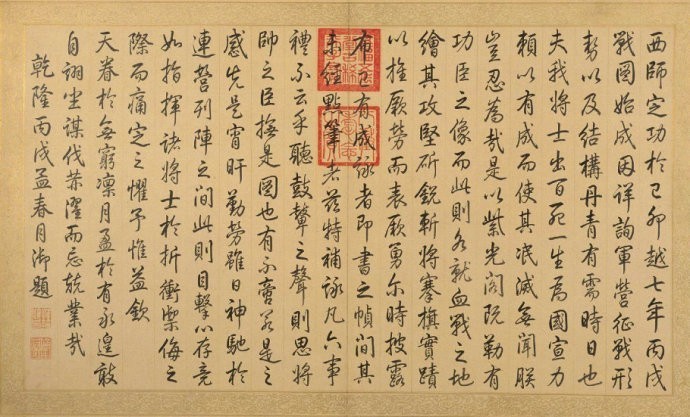 西師定功於己卯越七年丙戌
戰圖始成因詳詢軍營征戰形
勢以及結構丹青有需時日也
夫我將士出百死一生為國宣力
賴以有成而使其泯滅無聞朕
豈忍為哉是以紫光閣既勒有
功臣之像而此則各就血戰之地
繪其攻堅斫銳斬將搴旗實蹟
以旌厥勞而表厥勇尔時披露
布已有成詠者即書之幀間其
未經點筆者茲特補詠凡六事
禮不云乎聽鼓鼙之聲則思將
帥之臣撫是圖也有不啻若是之
感先是宵旰勤勞雖日神馳於
連營列陣之間此則目擊心存竟
如指揮諸將士於折衝禦侮之
際而痛定之懼予惟益欽
天眷於無窮凜月盈於有永遑敢
自詡坐謀伐濯而忘兢業哉
乾隆丙戌孟春月御題